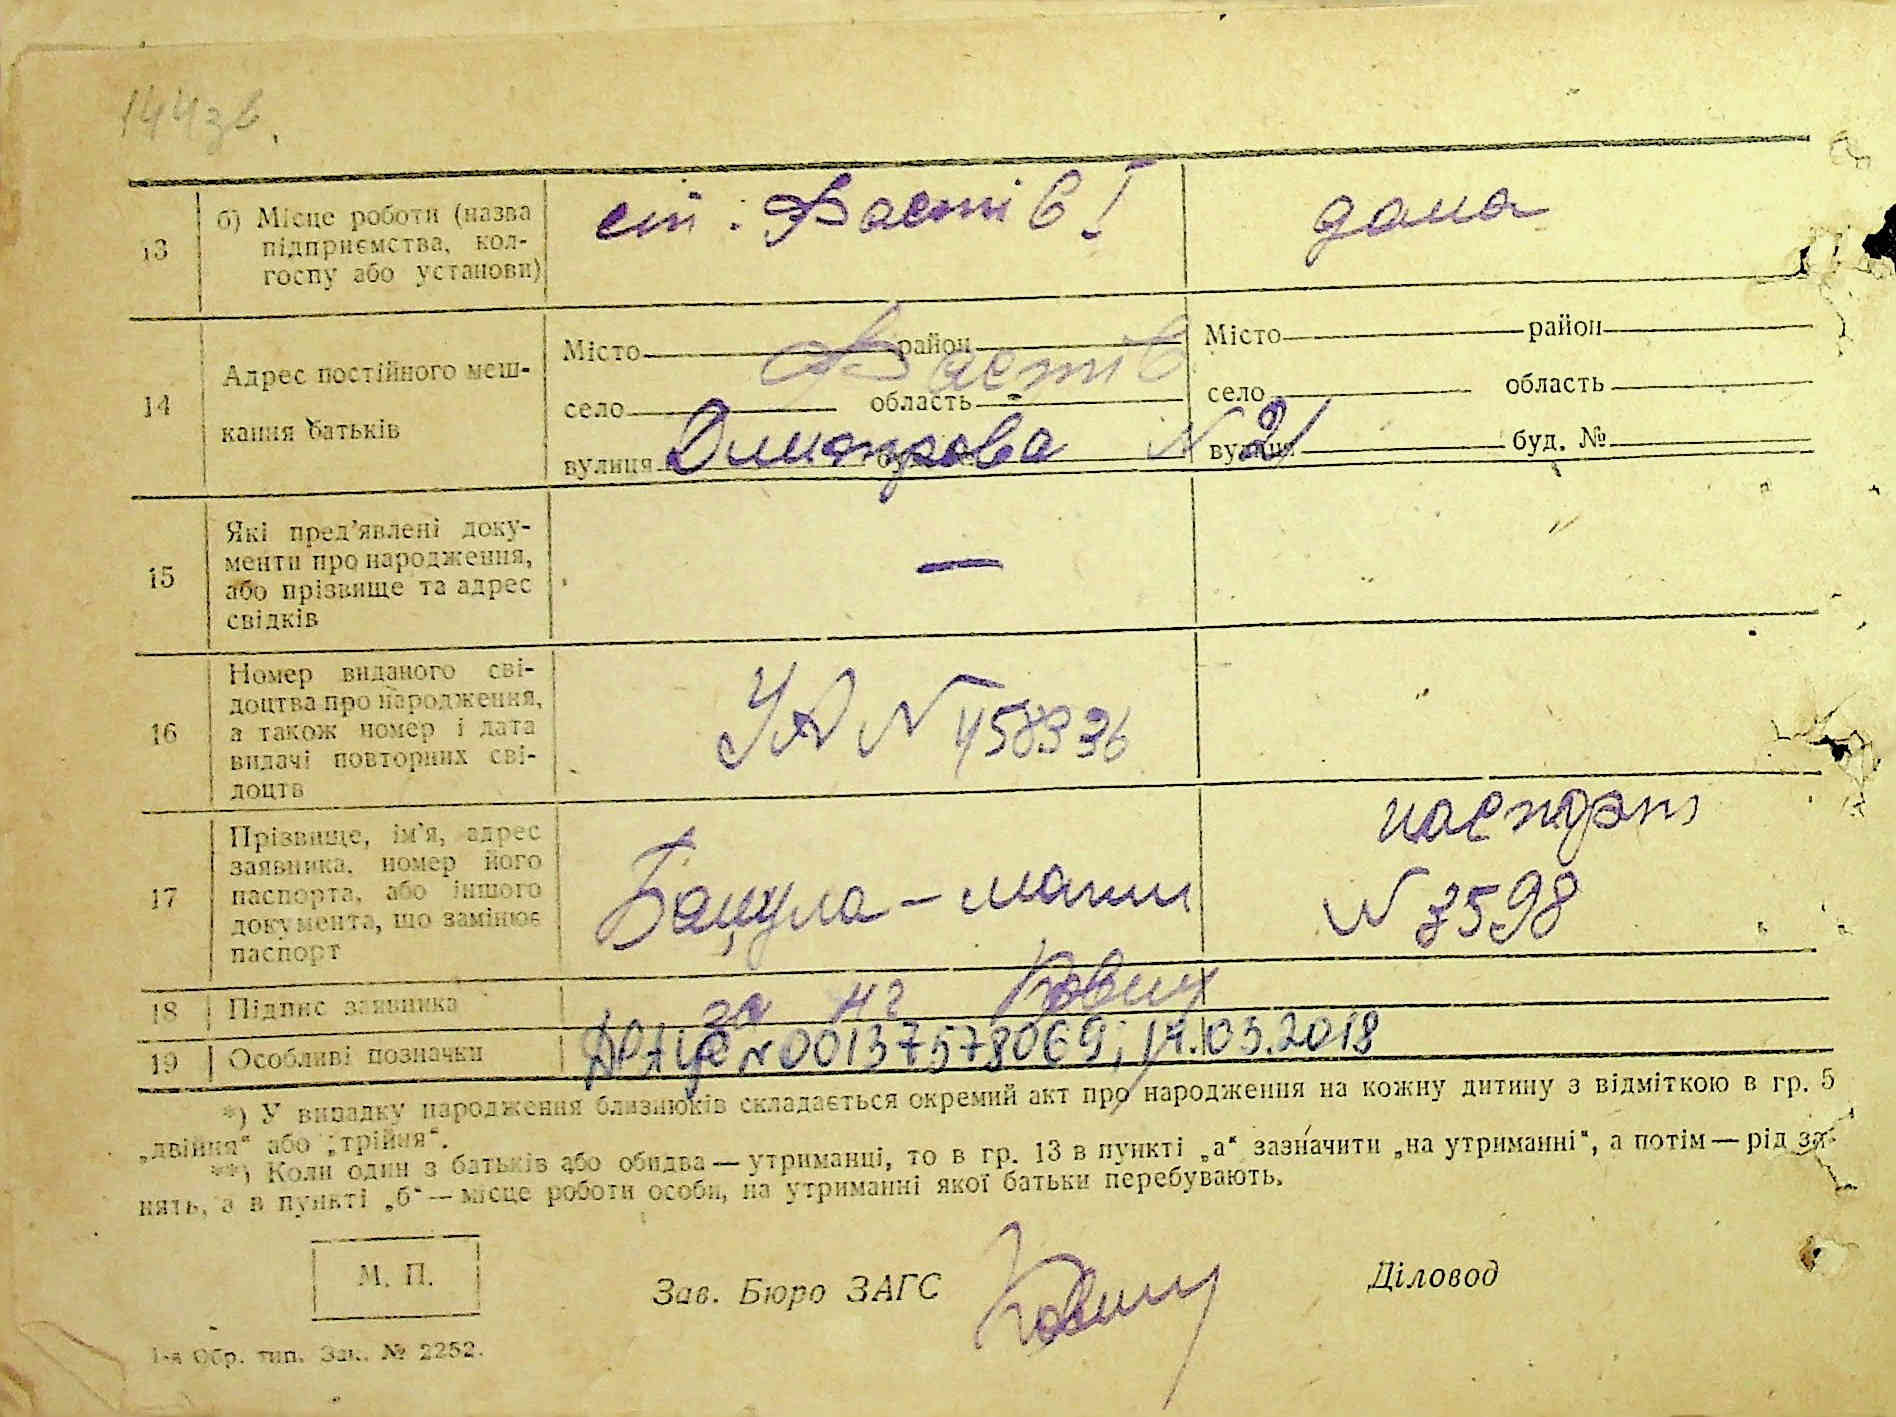 144зв.
13
б) Місце роботи (назва
підприємства, кол-
госпу або установи)
ст. Фастів I
дома
14
Адрес постійного меш-
кання батьків
Місто район
Фастів
село область
вулиця Димитрова № 21
Місто район
село область
вулиця буд. №
15
Які пред'явлені доку-
менти про народження,
або прізвище та адрес
свідків
—
16
Номер виданого сві-
доцтва про народження,
а також номер і дата
видачі повторних сві-
доцтв
УА № 458336
17
Прізвище, ім'я, адрес
заявника, номер його
паспорта, або іншого
документа, що замінює
паспорт
Бацула – мати
паспорт
№ 3598
18 Підпис заявника
за нг
19 Особливі позначки
№ 00137578069; 14.03.2018
*) У випадку народження близнюків складається окремий акт про народження на кожну дитину з відміткою в гр. 5
„двійня“ або „трійня“.
**) Коли один з батьків або обидва — утриманці, то в гр. 13 в пункті „а“ зазначити „на утриманні“, а потім — рід за-
нять, а в пункті „б“ — місце роботи особи, на утриманні якої батьки перебувають.
М. П.
Зав. Бюро ЗАГС
Діловод
1-а Обр. тип. Зак. № 2252.